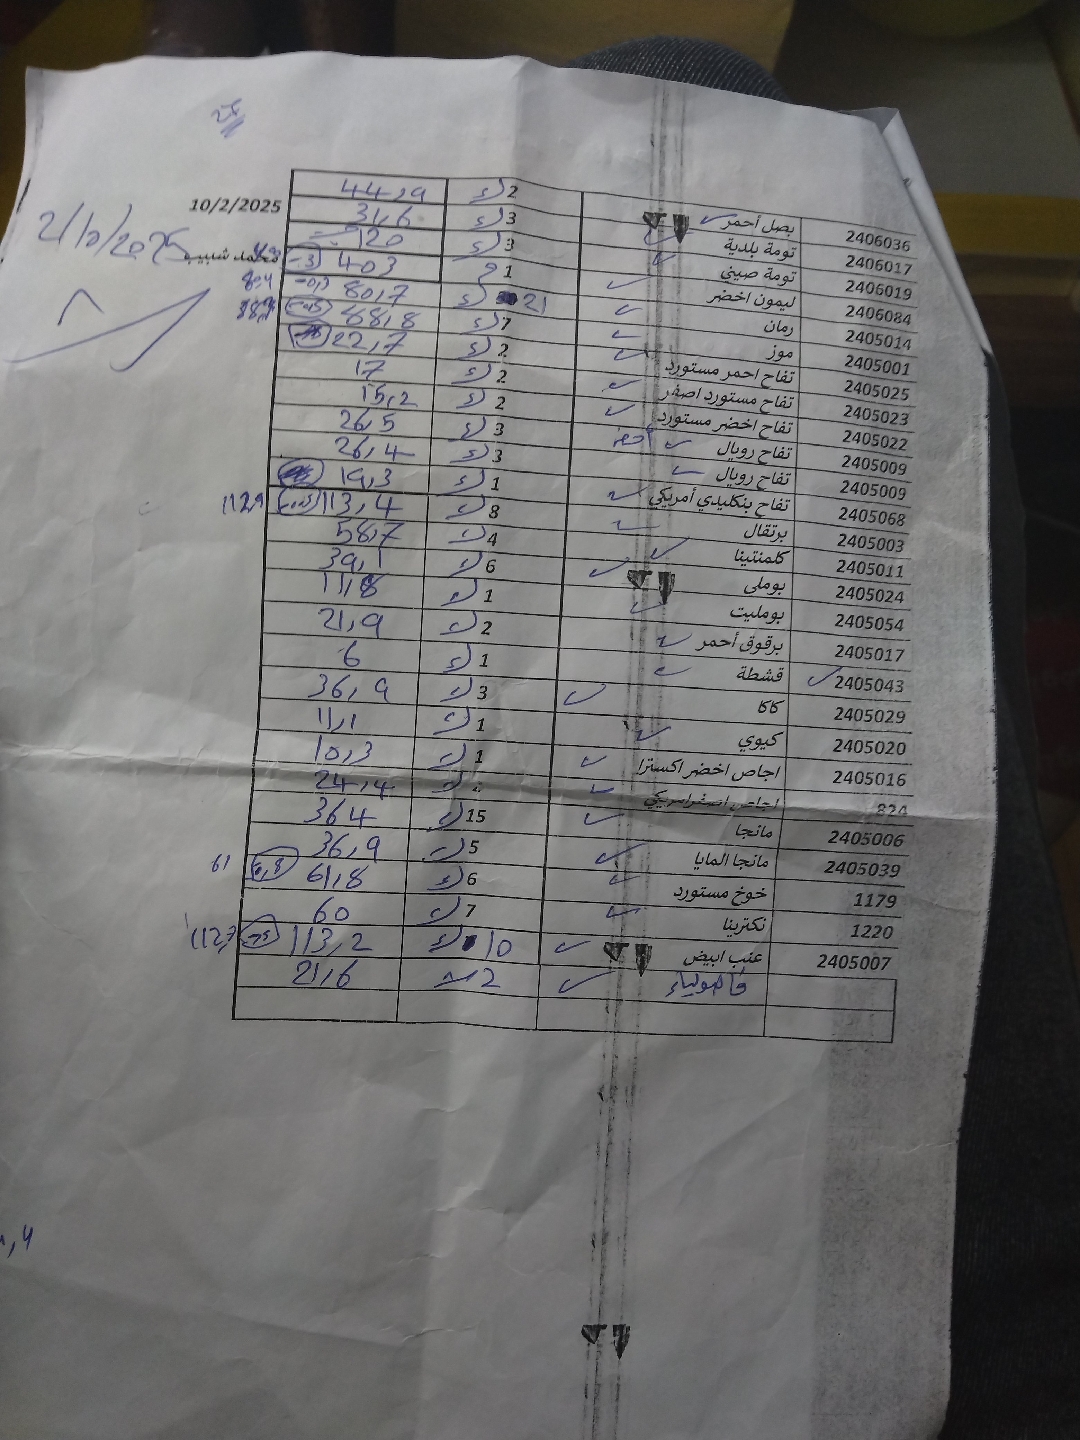 10/2/2025
2/10/2025
شبيب
2406036 بصل أحمر 2 ك 44,9
2406017 تومة بلدية 3 ك 31,6
2406019 تومة صيني 3 ك 120
2406084 ليمون اخضر 1 403
2405014 رمان 21 ك 80,7
2405001 موز 7 ك 88,8
2405025 تفاح احمر مستورد 2 ك 22,7
2405023 تفاح مستورد اصفر 2 ك 17
2405022 تفاح اخضر مستورد 2 ك 15,2
2405009 تفاح رويال أخضر 3 ك 26,5
2405009 تفاح رويال 3 ك 26,4
2405068 تفاح بنكليدي أمريكي 1 ك 19,3
2405003 برتقال 8 ك 113,4
2405011 كلمنتينا 4 ك 58,7
2405024 بوملي 6 ك 39,1
2405054 بومليت 1 ك 11,8
2405017 برقوق أحمر 2 ك 21,9
2405043 قشطة 1 ك 6
2405029 كاكا 3 ك 36,9
2405020 كيوي 1 ك 11,1
2405016 اجاص اخضر اكسترا 1 ك 10,3
824 اجاص اصفر امريكي ك 24,4
2405006 مانجا 15 ك 364
2405039 مانجا المايا 5 ك 36,9
1179 خوخ مستورد 6 ك 61,8 61
1220 نكترينا 7 ك 60
2405007 عنب ابيض 10 ك 113,2
فاصولياء 2 21,6